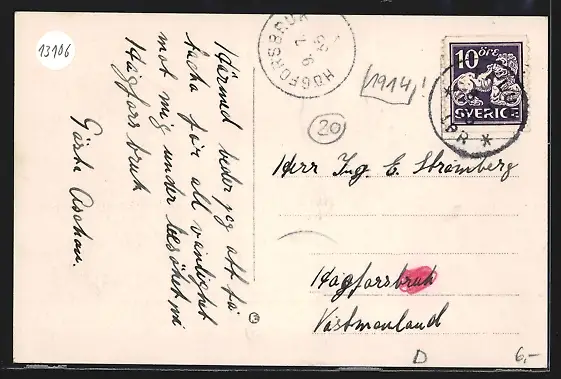 13106
Härmed beder jag att få
tacka för all vänlighet
mot mig under besöket vid
Högfors bruk
Gösta Aschan.
HÖGFORSBRUK
(1914)!
20
10 ÖRE
SVERIGE
Herr Ing. E. Strömberg
Högforsbruk
Västmanland
D
6,-